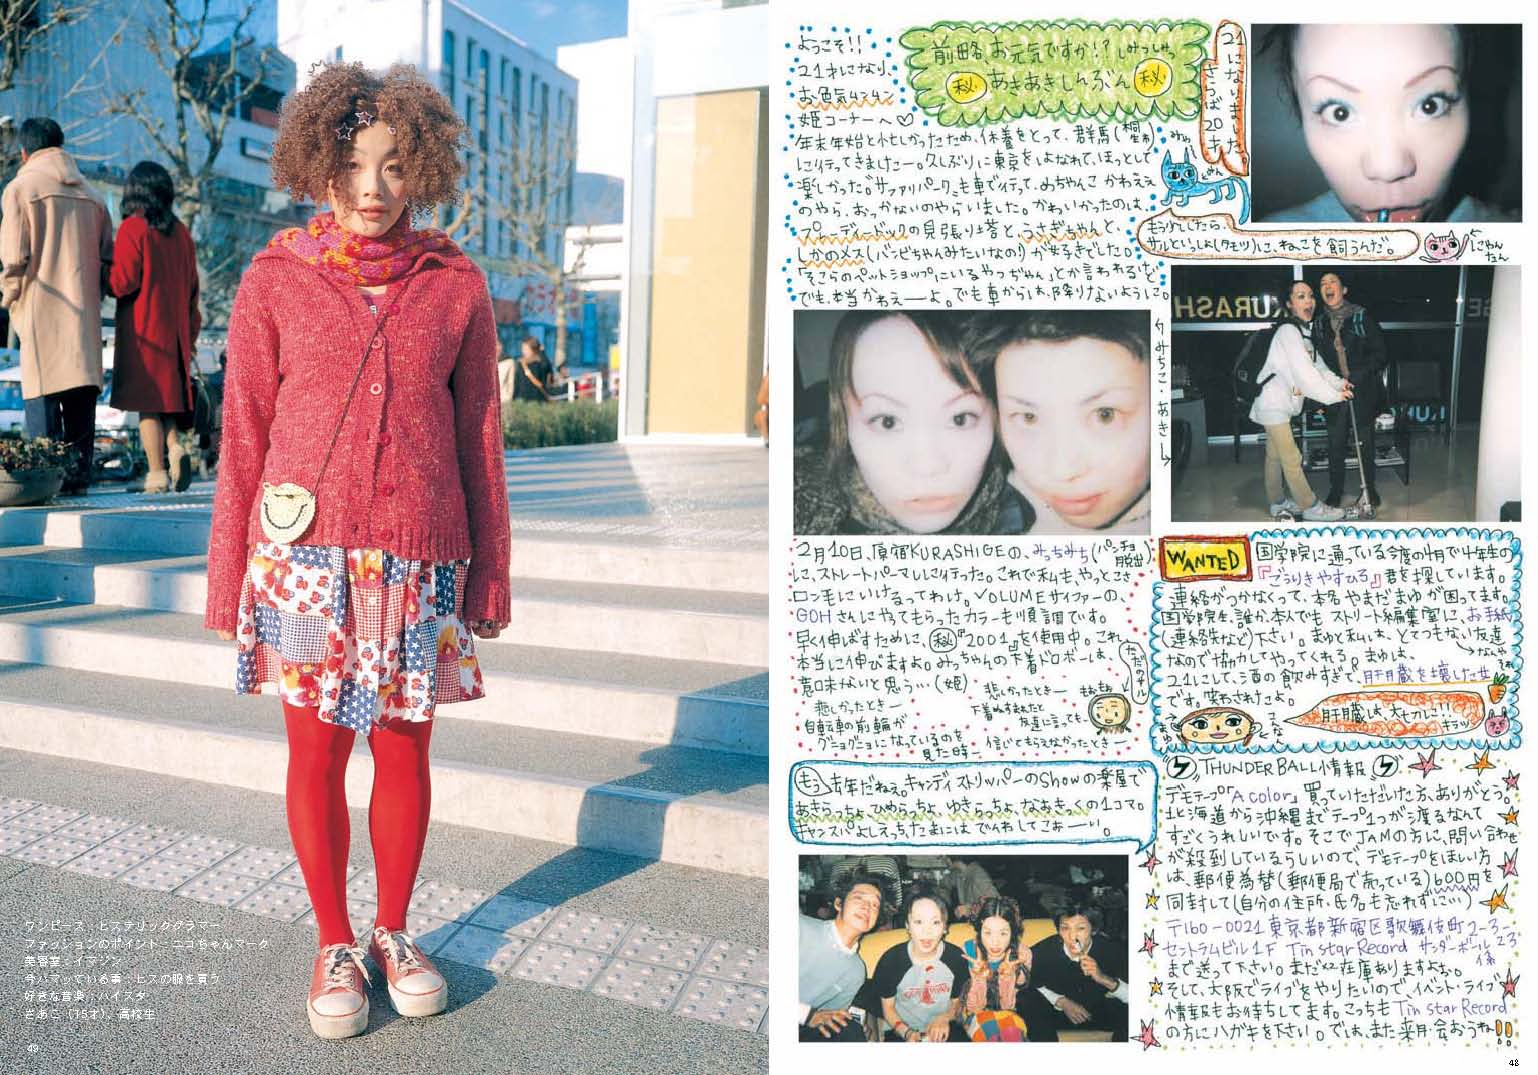 ワンピース：ヒステリックグラマー
ファッションのポイント：ニコちゃんマーク
美容室：イマジン
今ハマッている事：ヒスの服を買う
好きな音楽：ハイスタ
さあこ（15才）、高校生
49
ようこそ!!
21才になり、
お色気ムンムン
姫コーナーへ♡
前略、お元気ですか!?
㊙ あきあきしんぶん ㊙
21になりました。
さらば20才
年末年始と忙しかったため、休養をとって、群馬(桐生)
に行ってきましたー。久しぶりに東京を、はなれて、ほっとして
楽しかった。サファリパークにも車で行って、めちゃんこ かわええ
のやら、おっかないのやらいました。かわいかったのは、
プレーディードックの見張り塔と、うさぎちゃんと、
しかのメス(バンビちゃんみたいなの!)が好きでした。
「そこらのペットショップにいるやつぢゃん」とか言われるけど
でも、本当かわえーよ。でも車からは、降りないように。
もう少ししたら、
サルといっしょ(タモツ)に、ねこを飼うんだ。
←にゃん
たん
KURASHIGE
↑みちこ・あき→
2月10日、原宿KURASHIGEの、みっちみち(パンチョ
脱出)
に、ストレートパーマしに行った。これで私も、やっとこさ
ロン毛にいけるってわけ。VOLUMEサイファーの、
GOHさんにやってもらったカラーも順調です。
早く伸ばすために、㊙『2001』を使用中。これ
本当に伸びますよ。みっちゃんの下着ドロボーは、
意味ないと思う…(姫)
悲しかったとき―
自転車の前輪が
グニョグニョになっているのを
見た時―
悲しかったとき―
下着ぬすまれたと
友達に言っても、
信じてもらえなかったとき―
WANTED
国学院に通っている今度の4月で4年生の
『こうりきやすひろ』君を探しています。
連絡がつかなくって、本名やまだまゆが困ってます。
国学院生、誰か、本人でも ストリート編集室に、お手紙
(連絡先など)下さい。まゆと私は、とてつもない友達
なので協力してやってくれる。まゆは、
21にして、酒の飲みすぎで、肝臓を壊した女
です。笑わされたよ。
肝臓は、大セカレニ!!
キラッ
もう去年だねぇ。キャンディストリッパーのShowの楽屋で
あきらっちょ、ひめらっちょ、ゆきらっちょ、なおきっくの1コマ。
キャンスパよしえっち、たまにはでんわしてこぉーい。
THUNDERBALL情報
デモテープ「A color」買っていただいた方、ありがとう。
北海道から沖縄までテープ1つが渡るなんて
すごくうれしいです。そこでJAMの方に、問い合わせ
が殺到しているらしいので、デモテープをほしい方
は、郵便為替(郵便局で売っている)600円を
同封して(自分の住所、氏名も忘れずにいー)
〒160-0021 東京都新宿区歌舞伎町2-3-
23
セントラムビル1F Tin star Record サンダーボール係
まで送って下さい。まだ在庫ありますよぉ。
そして、大阪でライブをやりたいので、イベント・ライブ
情報もお待ちしてます。こっちもTin star Record
の方にハガキを下さい。では、また来月会おうね!!
48